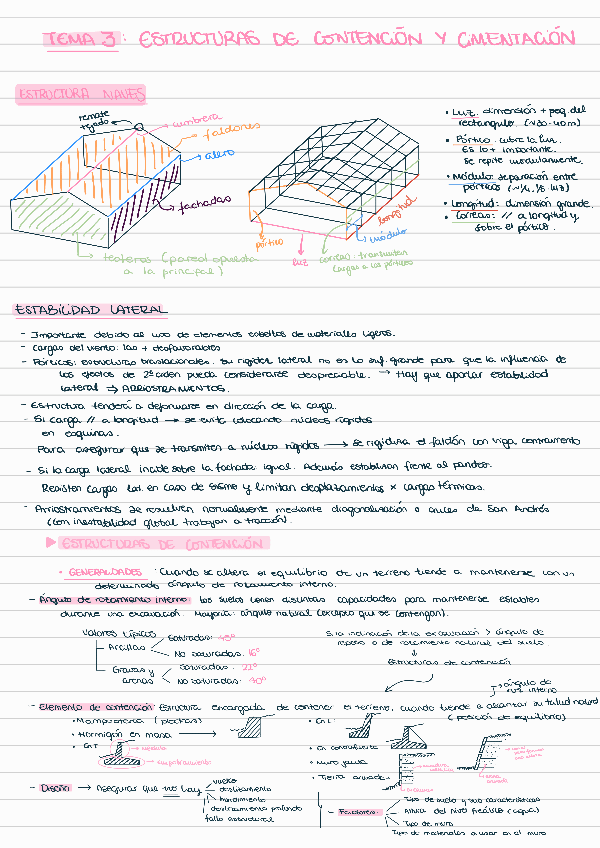 TEMA 3: ESTRUCTURAS DE CONTENCIÓN Y CIMENTACIÓN
ESTRUCTURA NAVES
remate
tejado
cumbrera
faldones
alero
fachadas
testeros (pared opuesta
a la principal)
pórtico
luz
correas: transmiten
cargas a los pórticos
módulo
longitud
• Luz: dimensión + peq. del
rectángulo. (~20-40m)
• Pórtico: cubre la luz.
Es lo + importante.
Se repite modularmente.
• Módulo: separación entre
pórticos
• Longitud: dimensión grande.
• Correas: // a longitud y
sobre el pórtico.
ESTABILIDAD LATERAL
- Importante debido al uso de elementos esbeltos de materiales ligeros.
- Cargas del viento: las + desfavorables
- Pórticos: estructuras traslacionales. Su rigidez lateral no es lo suf. grande para que la influencia de
los efectos de 2º orden pueda considerarse despreciable. → Hay que aportar estabilidad
lateral ⇒ ARRIOSTRAMIENTOS.
- Estructura tenderá a deformarse en dirección de la carga.
- Si carga // a longitud → se evita colocando núcleos rígidos
en esquinas.
Para asegurar que se transmiten a núcleos rígidos → se rigidiza el faldón con viga contraviento
- Si la carga lateral incide sobre la fachada igual. Además estabilizan frente al pandeo.
Resisten cargas lat. en caso de sismo y limitan desplazamientos x cargas térmicas.
- Arriostramientos se resuelven normalmente mediante diagonalización o cruces de San Andrés
(con inestabilidad global trabajan a tracción).
▶ ESTRUCTURAS DE CONTENCIÓN
• GENERALIDADES: Cuando se altera el equilibrio de un terreno tiende a mantenerse con un
determinado ángulo de rozamiento interno.
- Ángulo de rozamiento interno: los suelos tienen distintas capacidades para mantenerse estables
durante una excavación. Mayoría: ángulo natural (excepto que se contengan).
Valores típicos
Arcillas
Saturadas: 45º
No saturadas: 16º
Gravas y
arenas
Saturadas: 22º
No saturadas: 40º
Si la inclinación de la excavación > ángulo de
reposo o de rozamiento natural del suelo.
↓
Estructuras de contención
ángulo de
roz. interno
- Elemento de contención: Estructura encargada de contener el terreno, cuando tiende a alcanzar su talud natural
(posición de equilibrio).
• Mampostería (piedras)
• Hormigón en masa
• En T
• En L:
• En contrafuerte
• Muro jaula
• Tierra armada
- Diseño → Asegurar que no hay
vuelco
deslizamiento
hundimiento
deslizamiento profundo
fallo estructural
- Factores:
Tipo de suelo y sus características
Altura del nivel freático (agua)
Tipo de muro
Tipo de materiales a usar en el muro